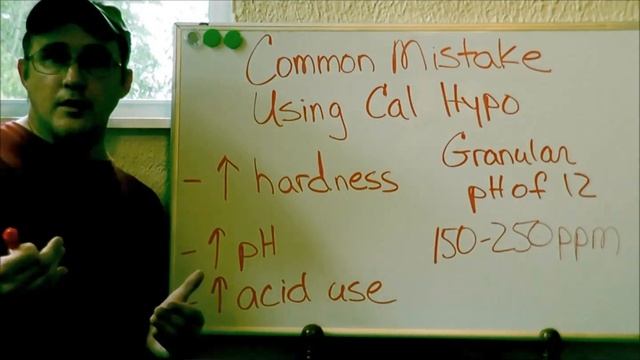 Common Mistake
Using Cal Hypo
- ↑ hardness
- ↑ pH
- ↑ acid use
Granular
pH of 12
150-250ppm